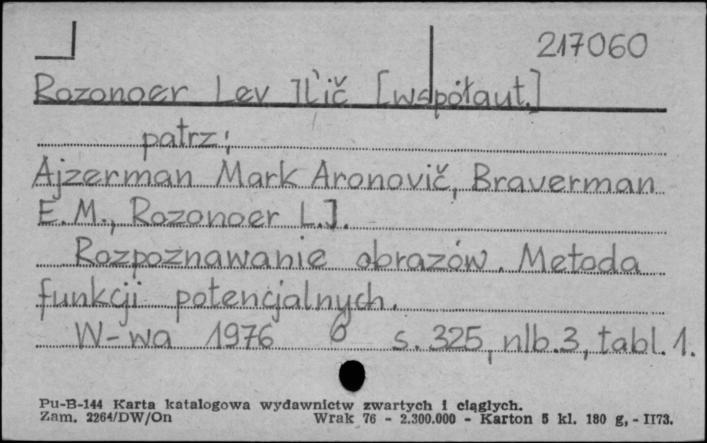 217060
Rozonoer Lev Il'ič [współaut.]
patrz:
Ajzerman Mark Aronovič, Braverman
E.M., Rozonoer L.I.
Rozpoznawanie obrazów. Metoda
funkcji potencjalnych.
W-wa 1976 8 s. 325, nlb. 3, tabl. 1.
Pu-B-144 Karta katalogowa wydawnictw zwartych i ciągłych.
Zam. 2264/DW/On Wrak 76 - 2.300.000 - Karton 5 kl. 180 g, - II73.